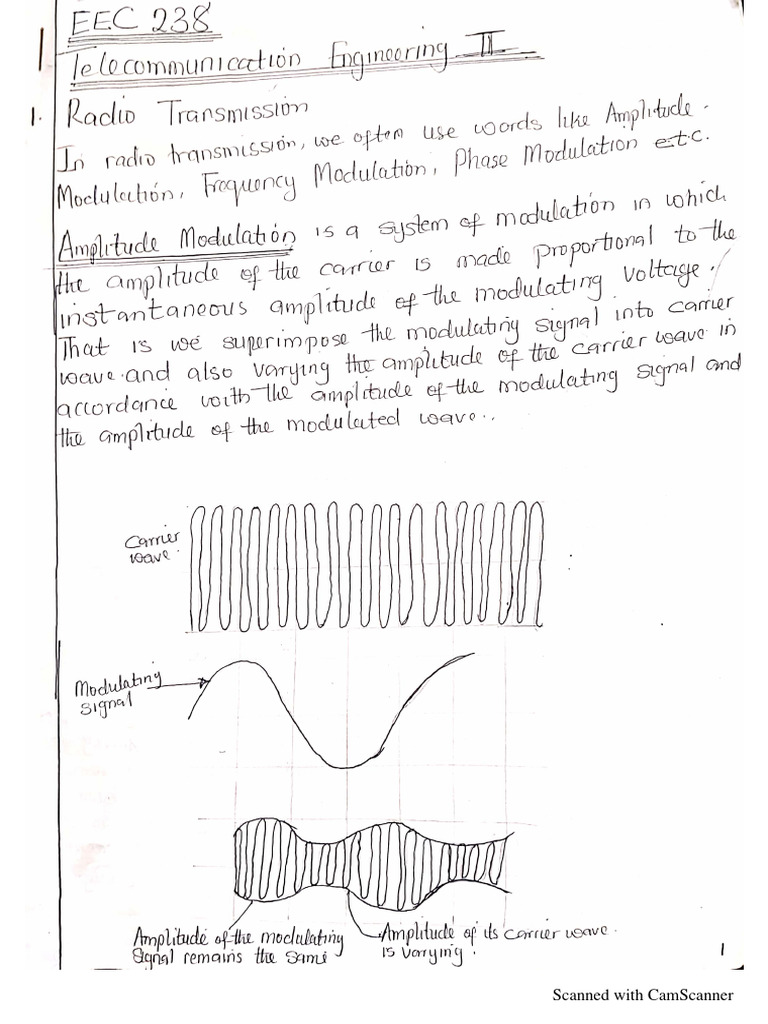 EEC 238
Telecommunication Engineering II
1. Radio Transmission
In radio transmission, we often use words like Amplitude.
Modulation, Frequency Modulation, Phase Modulation e.t.c.
Amplitude Modulation is a system of modulation in which
the amplitude of the carrier is made proportional to the
instantaneous amplitude of the modulating voltage.
That is we superimpose the modulating signal into carrier
wave and also varying the amplitude of the carrier wave in
accordance with the amplitude of the modulating signal and
the amplitude of the modulated wave..
Carrier
wave.
Modulating
signal
Amplitude of the modulating
signal remains the same
Amplitude of its carrier wave.
is varying.
1
Scanned with CamScanner